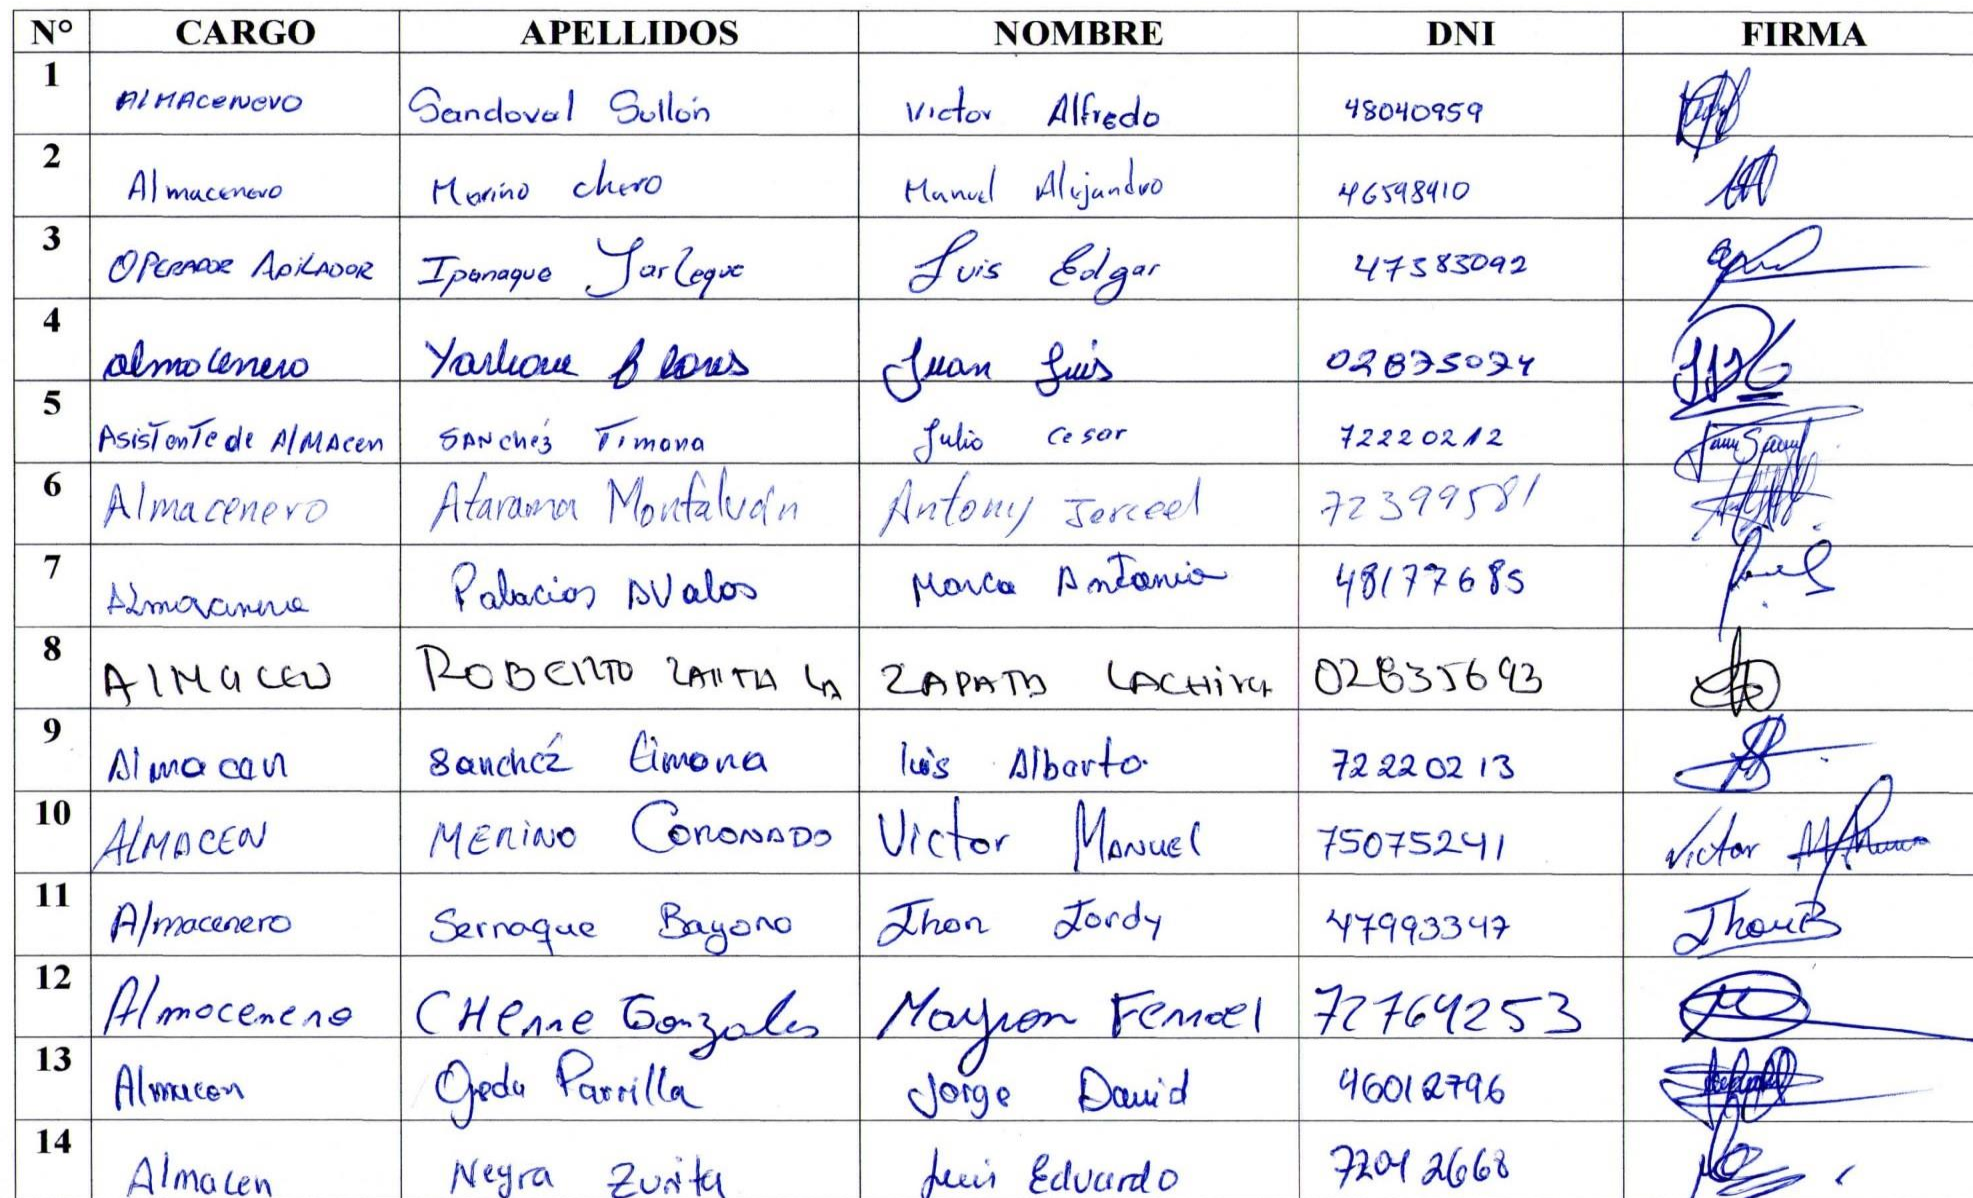 N° CARGO APELLIDOS NOMBRE DNI FIRMA
1 AlMACENERO Sandoval Sullón Victor Alfredo 48040959
2 Almacenero Merino chero Manuel Alejandro 46598410
3 OPERADOR APiLADOR Ipanaque Yarleque Luis Edgar 47383092
4 almacenero Juan Luis 02875074
5 AsisTenTe de AlMAcen SANchéz Timana Julio Cesar 72220212
6 Almacenero Atarama Montalván Antony Jerceel 72399581
7 Palacios AValos Marco Antonio 48177685
8 AlMaCEN ROBERTO ZAPATA LA ZAPATA LACHIRA 02835693
9 Almacen Sanchéz timana luis Alberto 72220213
10 ALMACEN MERiNO CORONADO Victor MANUEL 75075241 Victor
11 Almacenero Sernaque Bayona Jhon Jordy 47993347
12 Almacenero CHerre Gonzales Mayron 72764253
13 Almacen Ojeda Parrilla Jorge David 46012796
14 Almacen Neyra Zurita Luis Eduardo 72042668